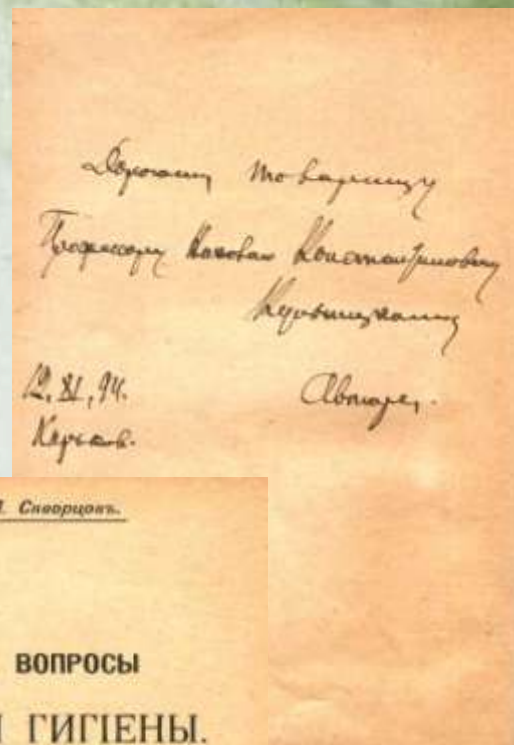 Дорогому товарищу
Профессору Николаю Константиновичу
Кульчицкому
Авторъ.
12, XI, 94.
Харьковъ.
Скворцовъ.
ВОПРОСЫ
ГИГІЕНЫ.